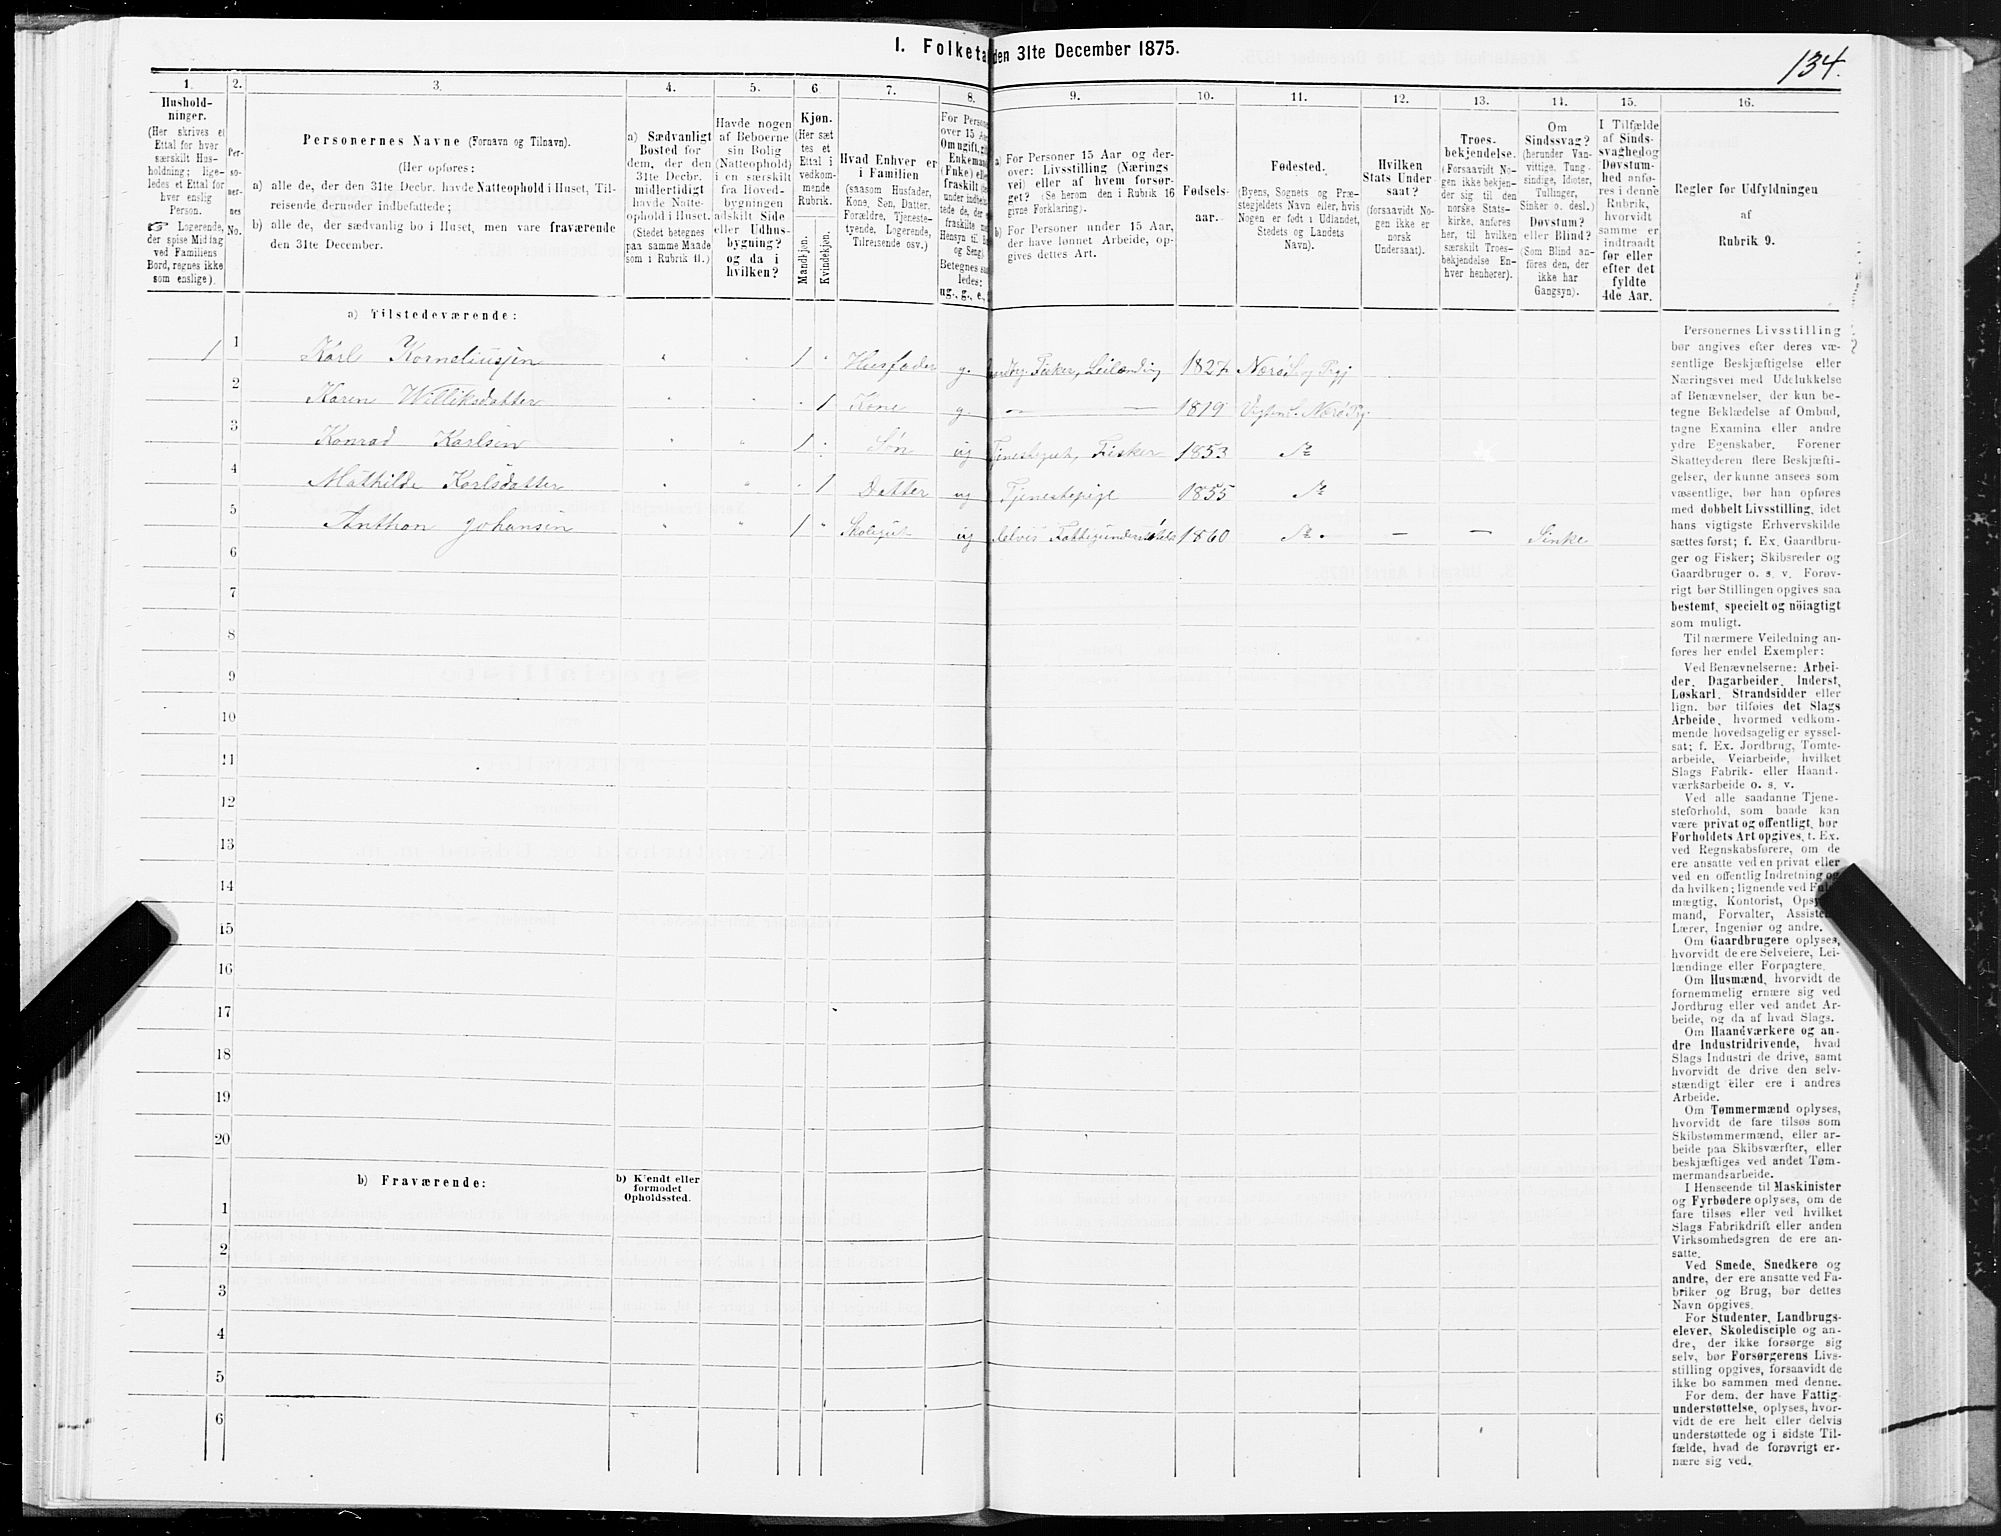 I. Folketa den 31te December 1875.
134.
1.
Hushold-
ninger.
(Her skrives et
Ettal for hver
særskilt Hus-
holdning; lige-
ledes et Ettal for
hver enslig
Person.
☞ Logerende,
der spise Middag
ved Familiens
Bord, regnes ikke
som enslige).
2.
Per-
so-
ner-
nes
No.
3.
Personernes Navne (Fornavn og Tilnavn).
(Her opføres:
a) alle de, der den 31te Decbr. havde Natteophold i Huset, Til-
reisende derunder indbefattede;
b) alle de, der sædvanlig bo i Huset, men vare fraværende
den 31te December.
4.
a) Sædvanligt
Bosted for
dem, der den
31te Decbr.
midlertidigt
havde Natte-
ophold i Huset.
(Stedet betegnes
paa samme Maade
som i Rubrik 11.)
5.
Havde nogen
af Beboerne
sin Bolig
(Natteophold)
i en særskilt
fra Hoved-
bygningen
adskilt Side
eller Udhus-
bygning?
og da i
hvilken?
6
Kjøn.
(Her sæt
tes et
Ettal i
vedkom-
mende
Rubrik.
Mandkjøn.
Kvindekjøn.
7.
Hvad Enhver er
i Familien
(saasom Husfader,
Kone, Søn, Datter,
Forældre, Tjeneste-
tyende, Logerende,
Tilreisende osv.)
8.
For Person
over 15 Aa
Om ugift, gi
Enkemand
(Fnke) elle
fraskilt (de
under indbefa
tede de, der e
fraskilte n
Hensyn til B
og Seng)
Betegnes saa
ledes:
ug., g., e.,
9.
a) For Personer 15 Aar og der-
over: Livsstilling (Nærings
vei) eller af hvem forsør-
get? (Se herom den i Rubrik 16
givne Forklaring).
b) For Personer under 15 Aar,
der have lønnet Arbeide, op-
gives dettes Art.
10.
Fødsels-
aar.
11.
Fødested.
(Byens, Sognets og Præ-
stegjeldets Navn eller, hvis
Nogen er født i Udlandet,
Stedets og Landets
Navn).
12.
Hvilken
Stats Under-
saat?
(forsaavidt No-
gen ikke er
norsk
Undersaat).
13.
Troes-
bekjendelse.
(Forsaavidt No-
gen ikke bekjen-
der sig til den
norske Stats-
kirke, anføres
her, til hvilken
særskilt Troes-
bekjendelse En-
hver henhører).
14.
Om
Sindssvag?
(herunder Van-
vittige, Tung-
sindige, Idioter,
Tullinger,
Sinker o. desl.)
Døvstum?
eller Blind?
(Som Blind an-
føres den, der
ikke har
Gangsyn).
15.
I Tilfælde
af Sinds-
svaghed og
Døvstum-
hed anfø-
res i denne
Rubrik,
hvorvidt
samme er
indtraadt
før eller
efter det
fyldte
4de Aar.
16.
Regler for Udfyldningen
af
Rubrik 9.
a) Tilstedeværende:
1 1 Karl Korneliussen " " 1 " Husfader g. Fisker, Leilænding 1827 Nærø
2 Karen Williksdatter " " " 1 Kone g. — — 1819
3 Konrad Karlsen " " 1 " Søn ug Tjenestegut, Fisker 1853
4 Mathilde Karlsdatter " " " 1 Datter ug Tjenestepige 1855
5 Anthon Johansen " " 1 " Skolegut ug delvis Fattigunderstøttels 1860 — — Sinke
6
7
8
9
10
11
12
13
14
15
16
17
18
19
20
b) Fraværende:
b) Kjendt eller
formodet
Opholdssted.
1
2
3
4
5
6
Personernes Livsstilling
bør angives efter deres væ-
sentlige Beskjæftigelse eller
Næringsvei med Udelukkelse
af Benævnelser, der kun be-
tegne Beklædelse af Ombud,
tagne Examina eller andre
ydre Egenskaber. Forener
Skatteyderen flere Beskjæfti-
gelser, der kunne ansees som
væsentlige, bør han opføres
med dobbelt Livsstilling, idet
hans vigtigste Erhvervskilde
sættes først; f. Ex. Gaardbru-
ger og Fisker; Skibsreder og
Gaardbruger o. s. v. Forøv-
rigt bør Stillingen opgives saa
bestemt, specielt og nöiagtigt
som muligt.
Til nærmere Veiledning an-
føres her endel Exempler:
Ved Benævnelserne: Arbei-
der, Dagarbeider, Inderst,
Løskarl, Strandsidder eller
lign. bør tilføies det Slags
Arbeide, hvormed vedkom-
mende hovedsagelig er syssel-
sat; f. Ex. Jordbrug, Tomte-
arbeide, Veiarbeide, hvilket
Slags Fabrik- eller Haand-
værksarbeide o. s. v.
Ved alle saadanne Tjene-
steforhold, som baade kan
være privat og offentligt, bør
Forholdets Art opgives, t. Ex.
ved Regnskabsførere, om de
ere ansatte ved en privat eller
ved en offentlig Indretning og
da hvilken; lignende ved Fuld-
mægtig, Kontorist, Opsyns-
mand, Forvalter, Assistent,
Lærer, Ingeniør og andre.
Om Gaardbrugere oplyses,
hvorvidt de ere Selveiere, Lei-
lændinge eller Forpagtere.
Om Husmænd, hvorvidt de
fornemmelig ernære sig ved
Jordbrug eller ved andet Ar-
beide, og da af hvad Slags.
Om Haandværkere og an-
dre Industridrivende, hvad
Slags Industri de drive, samt
hvorvidt de drive den selv-
stændigt eller ere i andres
Arbeide.
Om Tømmermænd oplyses,
hvorvidt de fare tilsøs som
Skibstømmermænd, eller ar-
beide paa Skibsværfter, eller
beskjæftiges ved andet Tøm-
mermandsarbeide.
I Henseende til Maskinister
og Fyrbødere oplyses, om de
fare tilsøs eller ved hvilket
Slags Fabrikdrift eller anden
Virksomhedsgren de ere an-
satte.
Ved Smede, Snedkere og
andre, der ere ansatte ved Fa-
briker og Brug, bør dettes
Navn opgives.
For Studenter, Landbrugs-
elever, Skoledisciple og an-
dre, der ikke forsørge sig
selv, bør Forsørgerens Livs-
stilling opgives, forsaavidt de
ikke bo sammen med denne.
For dem, der have Fattig-
understøttelse, oplyses, hvor-
vidt de ere helt eller delvis
understøttede og i sidste Til-
fælde, hvad de forøvrigt er-
nære sig ved.